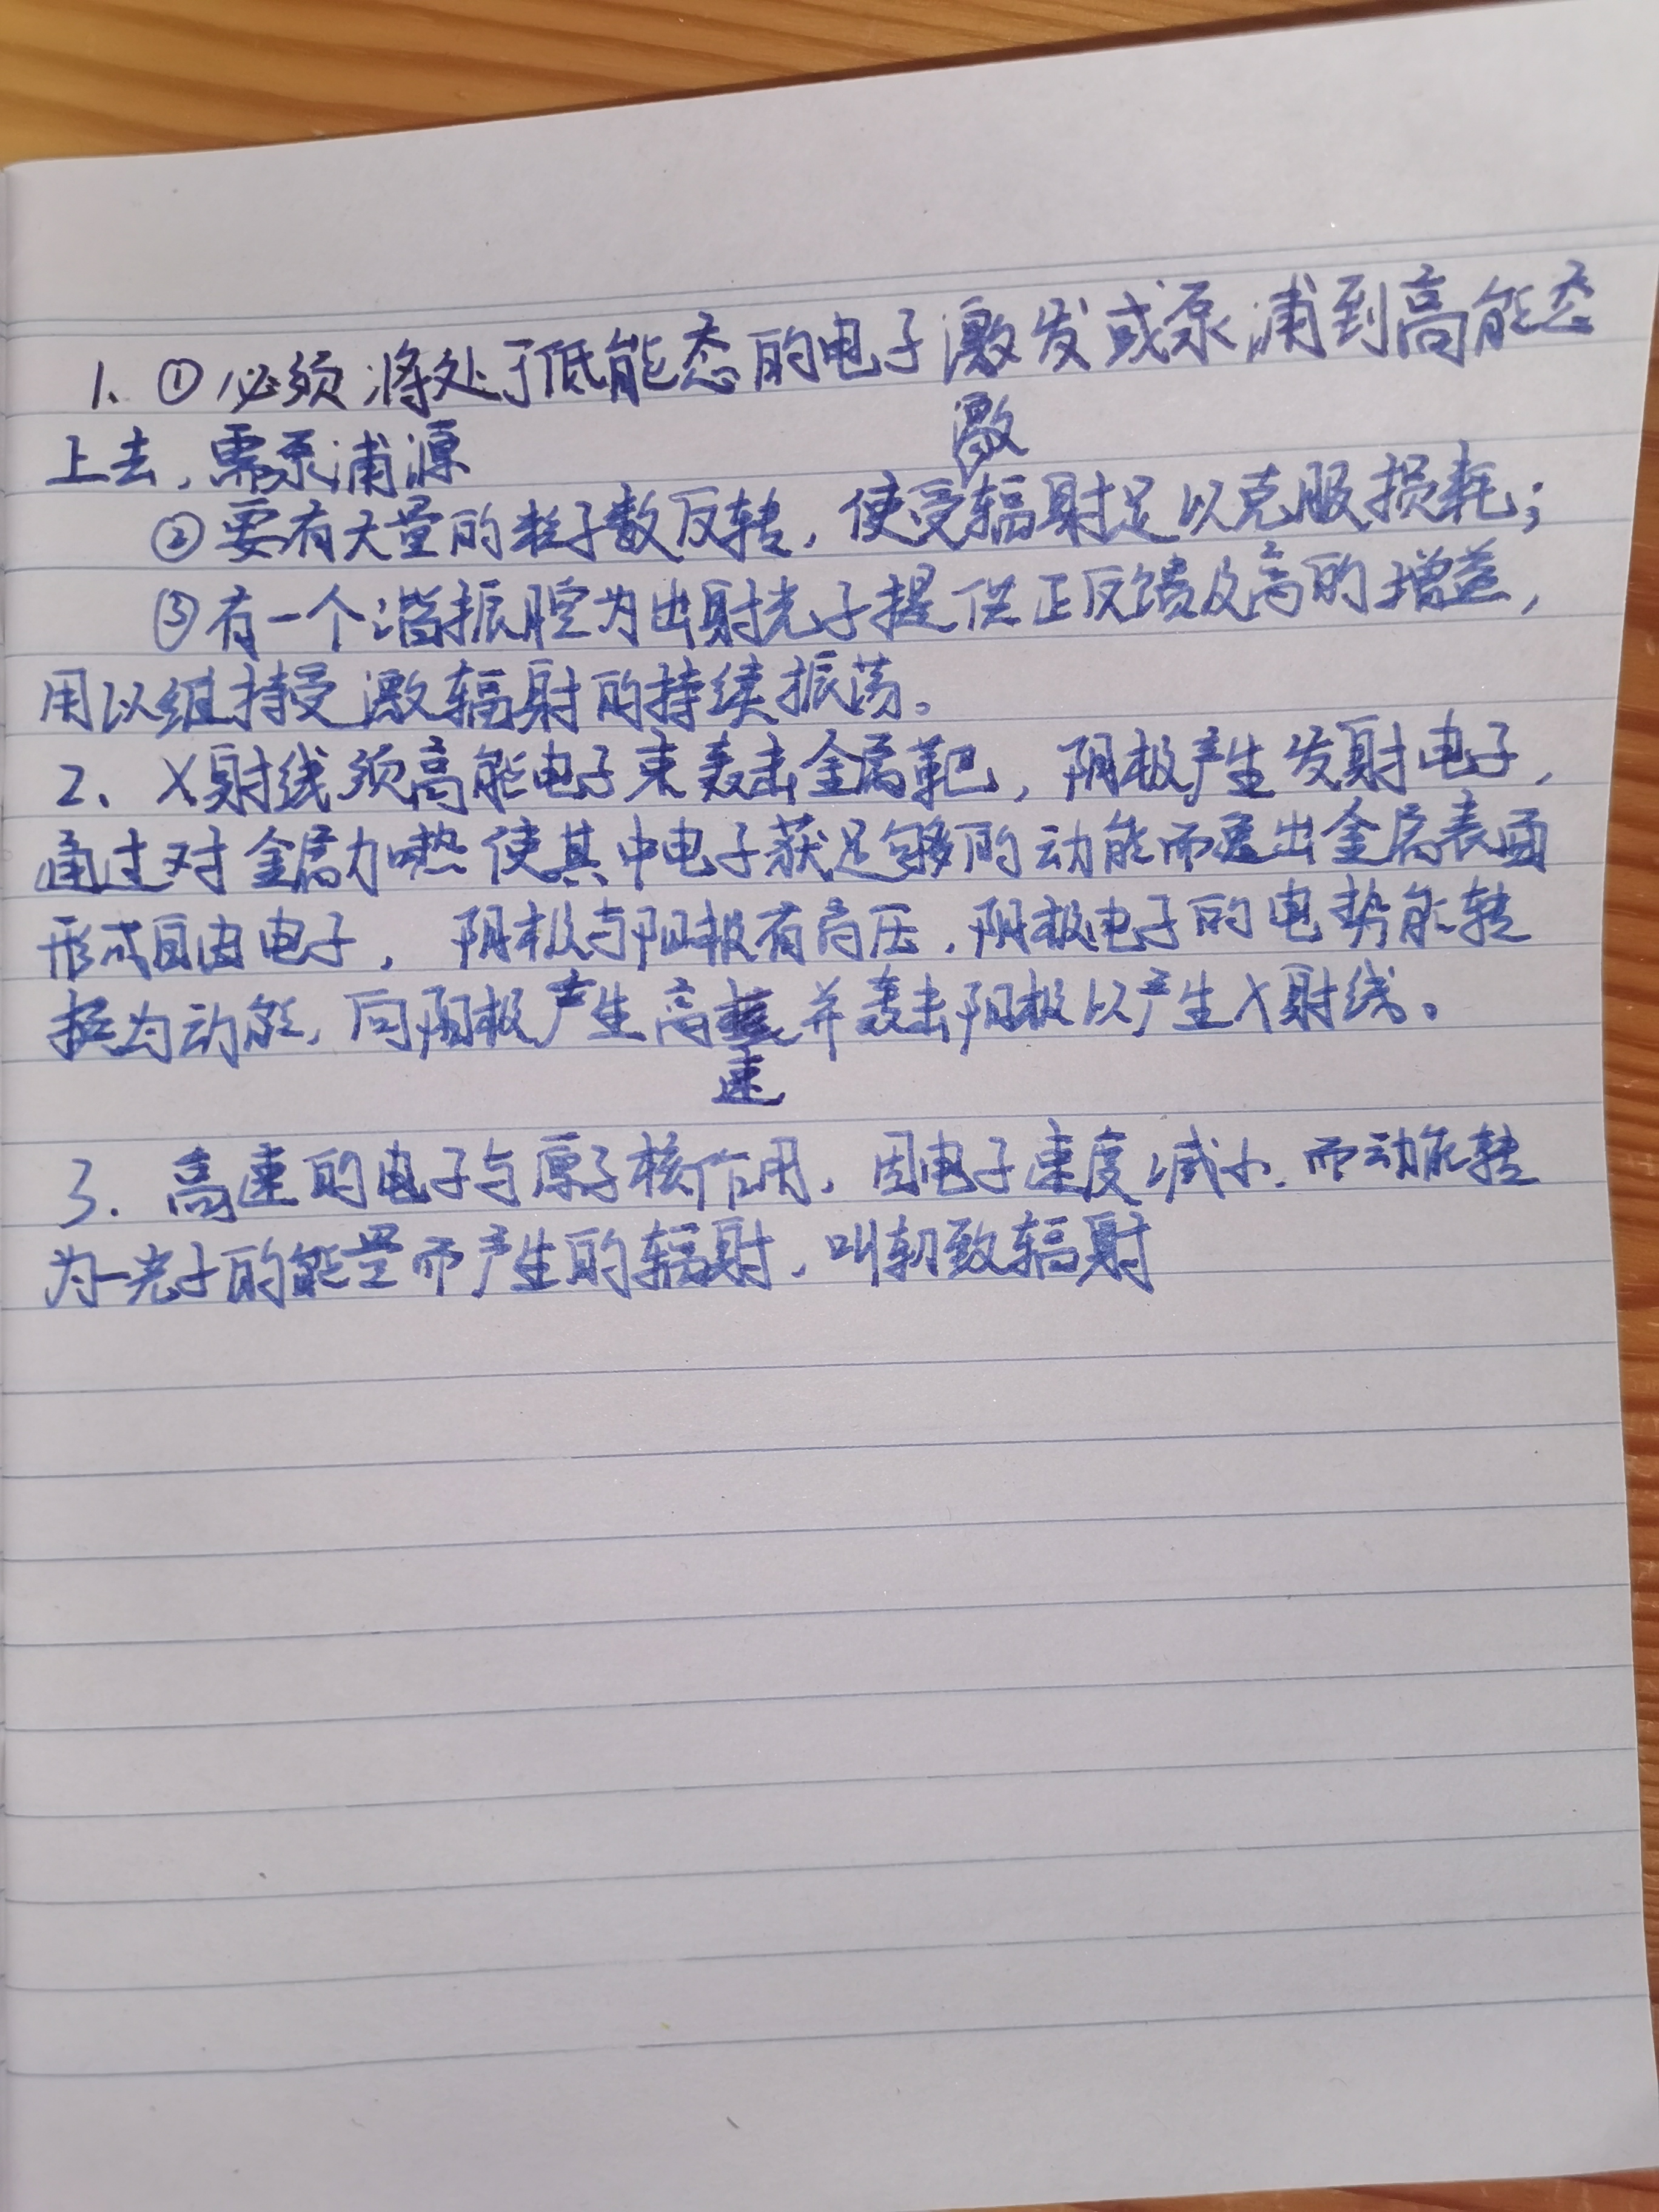 1、①必须将处于低能态的电子激发或泵浦到高能态
上去,需泵浦源
激
②要有大量的粒子数反转,使受辐射足以克服损耗;
③有一个谐振腔为出射光子提供正反馈及高的增益,
用以维持受激辐射的持续振荡。
2、X射线须高能电子束轰击金属靶,阴极产生发射电子,
通过对金属加热使其中电子获足够的动能而逸出金属表面
形成自由电子,阴极与阳极有高压,阴极电子的电势能转
换为动能,向阳极产生高并轰击阳极以产生X射线。
速
3.高速的电子与原子核作用,因电子速度减小.而动能转
为一光子的能量而产生的辐射,叫轫致辐射